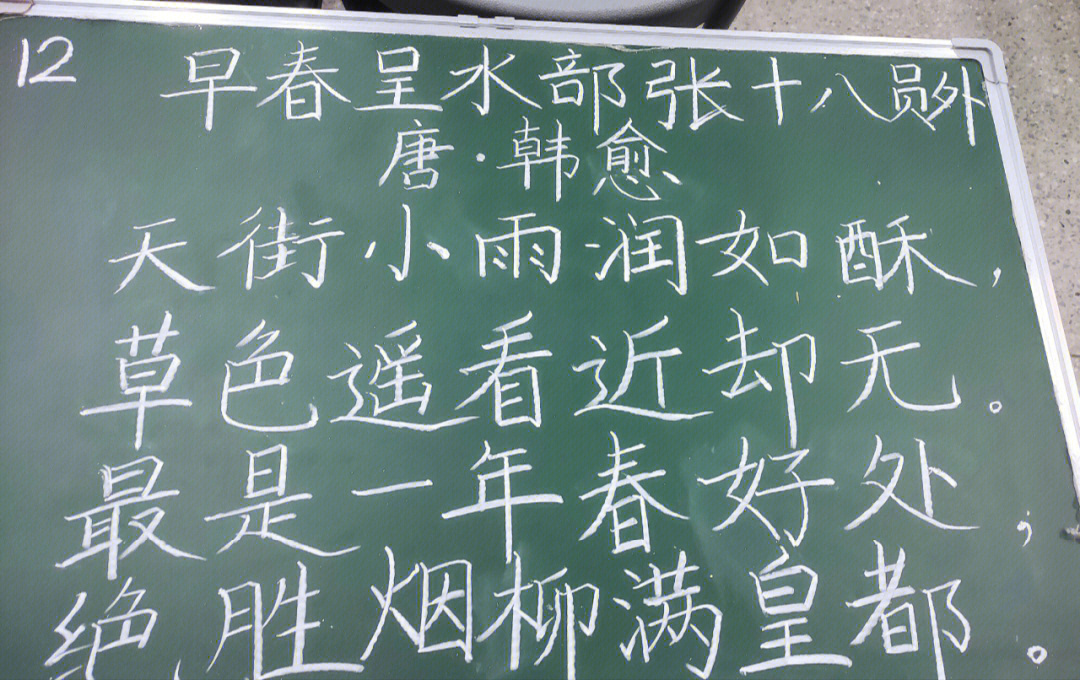 12 早春呈水部张十八员外
唐·韩愈
天街小雨润如酥,
草色遥看近却无。
最是一年春好处,
绝胜烟柳满皇都。